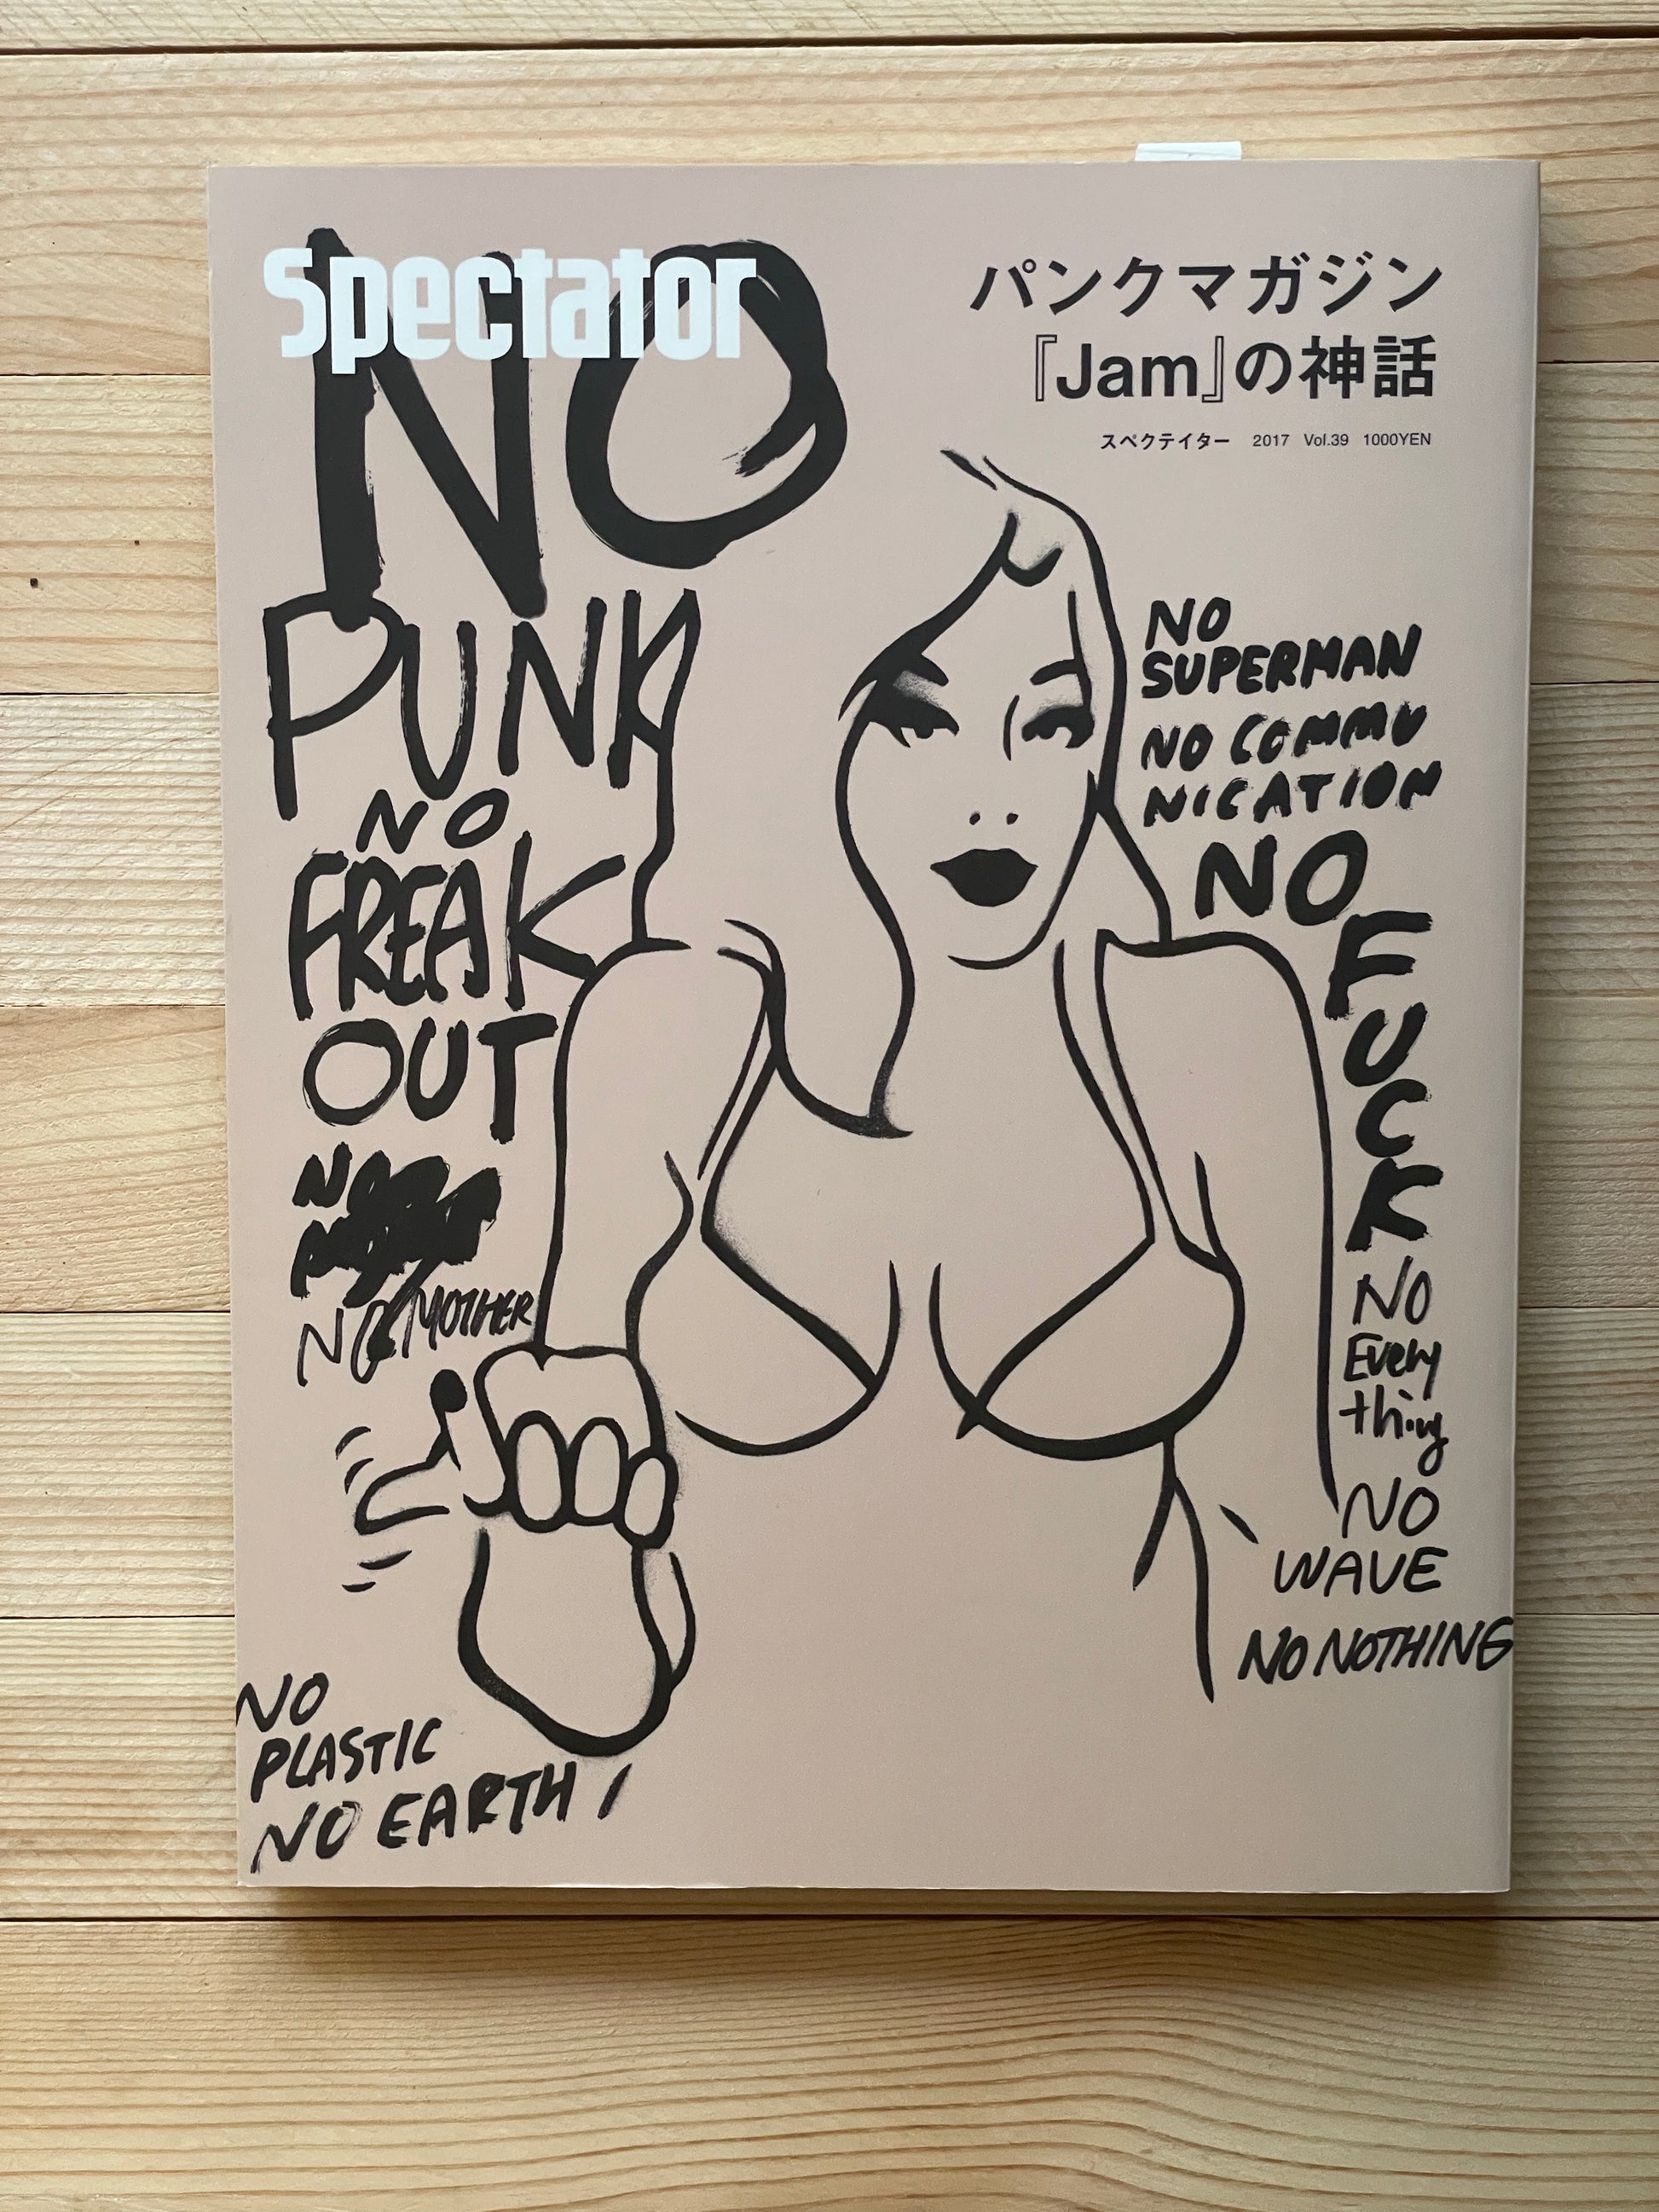 Spectator
パンクマガジン
『Jam』の神話
スペクテイター 2017 Vol.39 1000YEN
NO
PUNK
NO
FREAK
OUT
NO
NO MOTHER
NO
PLASTIC
NO EARTH
NO
SUPERMAN
NO COMMU
NICATION
NO
FUCK
NO
Every
thing
NO
WAVE
NO NOTHING